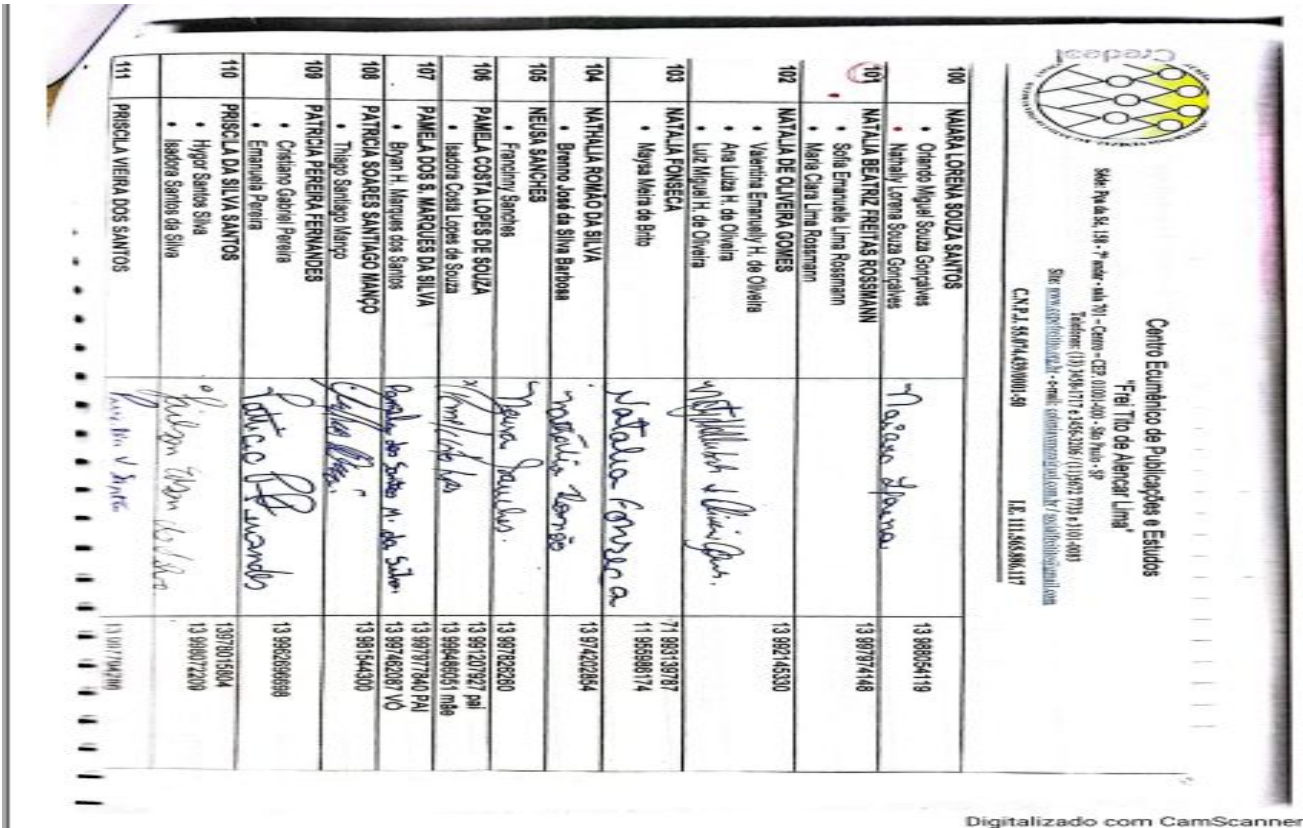 Credesl
Centro Ecumênico de Publicações e Estudos
"Frei Tito de Alencar Lima"
Sede: Pça da Sé, 158 - 7º andar - sala 701 – Centro – CEP. 01001-000 - São Paulo - SP
Telefones: (13)
C.N.P.J. 55.074.439/0001-50 I.E. 111.565.886.117
100 NAIARA LORENA SOUZA SANTOS
• Orlando Miguel Souza Gonçalves
• Nathally Lorena Souza Gonçalves
Naiara Lorena
13 988054119
101 NATALIA BEATRIZ FREITAS ROSSMANN
• Sofia Emanuelle Lima Rossmann
• Maria Clara Lima Rossmann
13 997974148
102 NATALIA DE OLIVEIRA GOMES
• Valentina Emanuelly H. de Oliveira
• Ana Luiza H. de Oliveira
• Luiz Miguel H. de Oliveira
13 992145330
103 NATALJA FONSECA
• Maysa Meira de Brito
Natalja Fonseca
71 993139787
11 955986174
104 NATHALIA ROMÃO DA SILVA
• Brenno José da Silva Barbosa
Nathália Romão
13 974202854
105 NEUSA SANCHES
• Francinny Sanches
Neusa Sanches.
13 997828280
106 PAMELA COSTA LOPES DE SOUZA
• Isadora Costa Lopes de Souza
13 991207927 pai
13 996486051 mãe
107 PAMELA DOS S. MARQUES DA SILVA
• Bryan H. Marques dos Santos
Pamela dos Santos M. da Silva
13 997977840 PAI
13 997462087 VÓ
108 PATRICIA SOARES SANTIAGO MANÇO
• Thiago Santiago Manço
13 981544300
109 PATRICIA PEREIRA FERNANDES
• Cristiano Gabriel Pereira
• Emanuela Pereira
Patricia P Fernandes
13 9962696698
110 PRISCLA DA SILVA SANTOS
• Hygor Santos Silva
• Isadora Santos da Silva
13978015804
13 988072209
111 PRISCLA VIEIRA DOS SANTOS
Digitalizado com CamScanner